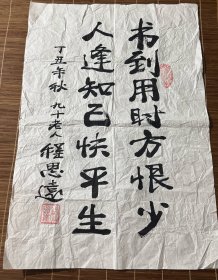 书到用时方恨少
人逢知己快平生
丁丑年秋 九十老人 程思远